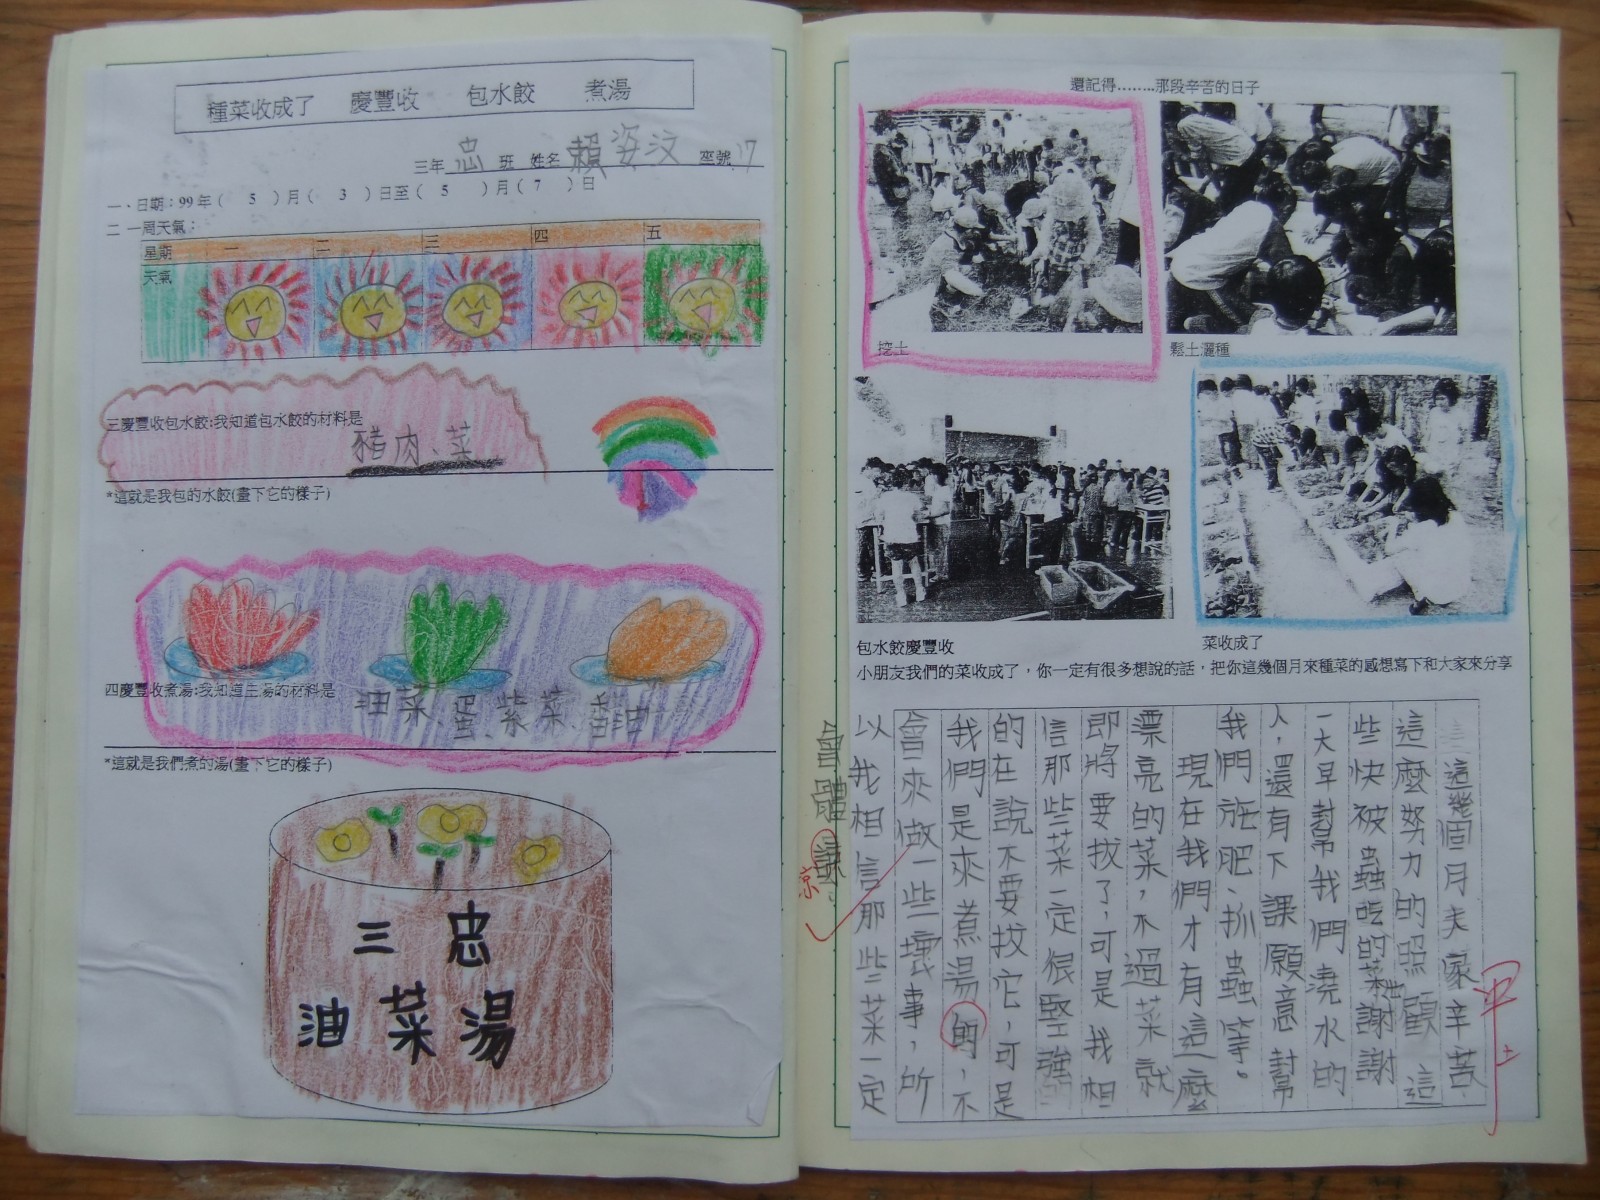 種菜收成了 慶豐收 包水餃 煮湯
三年 忠 班 姓名 賴姿汶 座號 17
一、日期：99年( 5 )月( 3 )日至( 5 )月( 7 )日
二 一周天氣：
星期 一 二 三 四 五
天氣
三慶豐收包水餃:我知道包水餃的材料是
豬肉、菜
*這就是我包的水餃(畫下它的樣子)
四慶豐收煮湯:我知道主湯的材料是
油菜、蛋、紫菜、香油
*這就是我們煮的湯(畫下它的樣子)
三忠
油菜湯
還記得........那段辛苦的日子
挖土
鬆土灑種
包水餃慶豐收
菜收成了
小朋友我們的菜收成了，你一定有很多想說的話，把你這幾個月來種菜的感想寫下和大家來分享
這幾個月大家辛苦
這麼努力的照顧這
些快被蟲吃的菜謝謝
一大早幫我們澆水的
人，還有下課願意幫
我們施肥、抓蟲等。
現在我們才有這麼
漂亮的菜，不過菜就
即將要拔了，可是我相
信那些菜一定很堅強
的在說不要拔它，可是
我們是來煮湯的，不
會來做一些壞事，所
以我相信那些菜一定
會體諒
諒
甲上